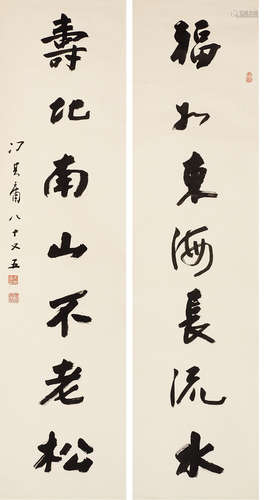 福如東海長流水
壽比南山不老松
冯其庸八十又五